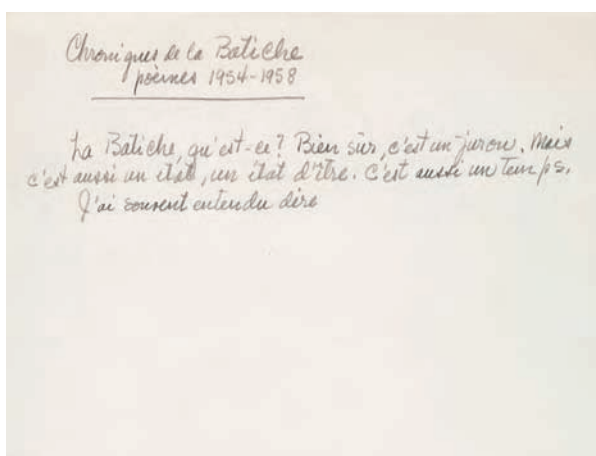 Chroniques de la Batiche
poèmes 1954-1958
La Batiche, qu'est-ce? Bien sûr, c'est un juron. Mais
c'est aussi un état, un état d'être. C'est aussi un temps.
J'ai souvent entendu dire